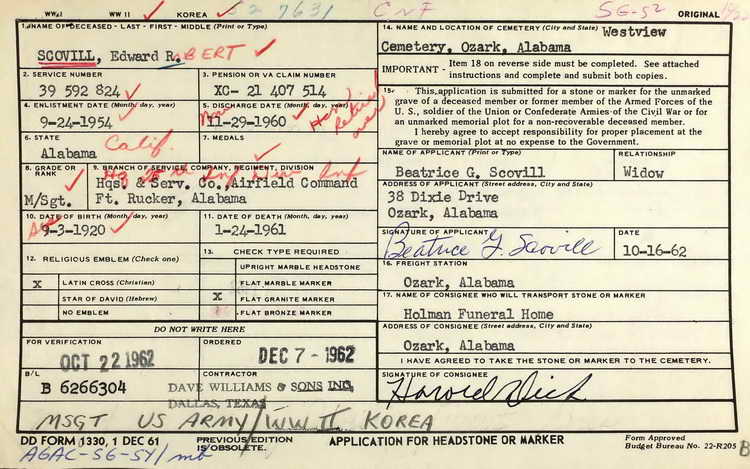 WW I WW II KOREA ✓ 52 7631 CNF SG-52 ORIGINAL
1. NAME OF DECEASED - LAST - FIRST - MIDDLE (Print or Type)
SCOVILL, Edward R. BERT ✓
2. SERVICE NUMBER
39 592 824 ✓
3. PENSION OR VA CLAIM NUMBER
XC- 21 407 514
4. ENLISTMENT DATE (Month, day, year)
9-24-1954 ✓
5. DISCHARGE DATE (Month, day, year)
Nov
11-29-1960 ✓
Hon Retired
6. STATE
Alabama Calif.
7. MEDALS
8. GRADE OR RANK
M/Sgt. ✓
9. BRANCH OF SERVICE, COMPANY, REGIMENT, DIVISION
Hq 25th Inf Div Inf
Hqs. & Serv. Co., Airfield Command
Ft. Rucker, Alabama
10. DATE OF BIRTH (Month, day, year)
9-3-1920 ✓
11. DATE OF DEATH (Month, day, year)
1-24-1961
12. RELIGIOUS EMBLEM (Check one)
X LATIN CROSS (Christian)
STAR OF DAVID (Hebrew)
NO EMBLEM
13. CHECK TYPE REQUIRED
UPRIGHT MARBLE HEADSTONE
FLAT MARBLE MARKER
X FLAT GRANITE MARKER
FLAT BRONZE MARKER
DO NOT WRITE HERE
FOR VERIFICATION
OCT 22 1962
ORDERED
DEC 7 - 1962
B/L
B 6266304
CONTRACTOR
DAVE WILLIAMS & SONS INC.
DALLAS, TEXAS
14. NAME AND LOCATION OF CEMETERY (City and State) Westview
Cemetery, Ozark, Alabama
IMPORTANT - Item 18 on reverse side must be completed. See attached
instructions and complete and submit both copies.
15. This application is submitted for a stone or marker for the unmarked
grave of a deceased member or former member of the Armed Forces of the
U. S., soldier of the Union or Confederate Armies of the Civil War or for
an unmarked memorial plot for a non-recoverable deceased member.
I hereby agree to accept responsibility for proper placement at the
grave or memorial plot at no expense to the Government.
NAME OF APPLICANT (Print or Type)
Beatrice G. Scovill
RELATIONSHIP
Widow
ADDRESS OF APPLICANT (Street address, City and State)
38 Dixie Drive
Ozark, Alabama
SIGNATURE OF APPLICANT
Beatrice G. Scovill
DATE
10-16-62
16. FREIGHT STATION
Ozark, Alabama
17. NAME OF CONSIGNEE WHO WILL TRANSPORT STONE OR MARKER
Holman Funeral Home
ADDRESS OF CONSIGNEE (Street address, City and State)
Ozark, Alabama
I HAVE AGREED TO TAKE THE STONE OR MARKER TO THE CEMETERY.
SIGNATURE OF CONSIGNEE
Harold Dick
MSGT US ARMY / WW II KOREA
DD FORM 1330, 1 DEC 61
PREVIOUS EDITION
IS OBSOLETE.
APPLICATION FOR HEADSTONE OR MARKER
Form Approved
Budget Bureau No. 22-R205
AGAC-SG-SY/mb
B